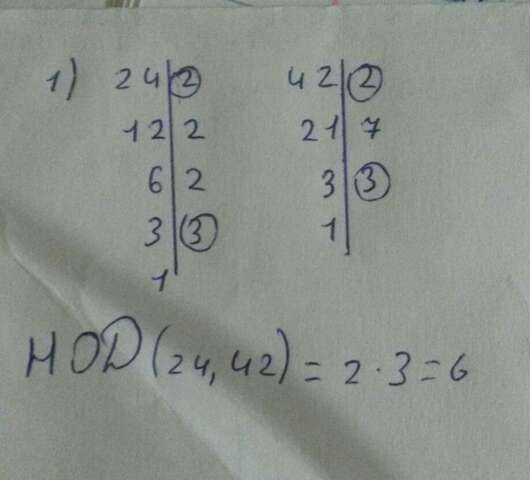 1) 24|2 42|2
12|2 21|7
6|2 3|3
3|3 1|
1
НОД(24,42)=2·3=6